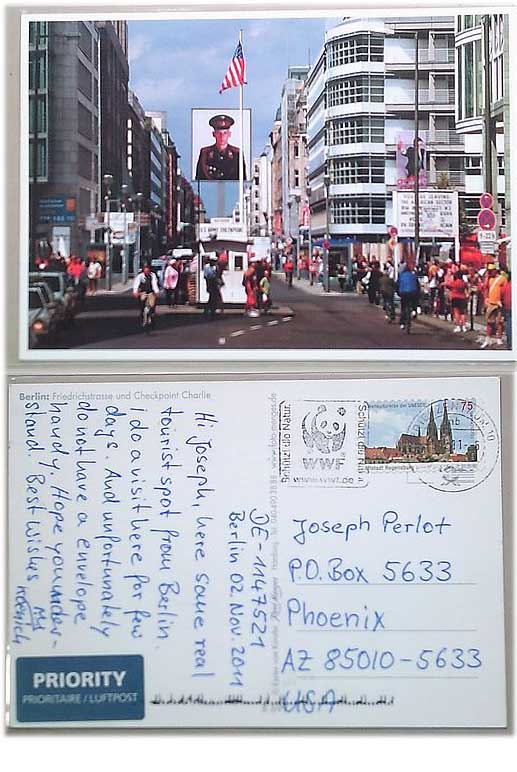 U.S. ARMY CHECKPOINT
9-22h
Berlin: Friedrichstrasse und Checkpoint Charlie
Hi Joseph, here some real
tourist spot from Berlin.
I do a visit here for few
days. And unfortunately
do not have a envelope
handy. Hope you under-
stand! Best wishes
DE-1147521
Berlin 02. Nov. 2011
www.foto-menges.de
Schützt die Natur.
WWF
www.wwf.de
Schützt die Natur
75
Altstadt Regensburg
Joseph Perlot
P.O. Box 5633
Phoenix
AZ 85010-5633
USA
PRIORITY
PRIORITAIRE / LUFTPOST